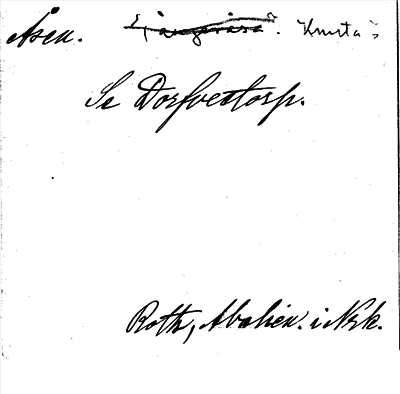 Åsen. Knista
Se Dorfvestorp.
Roth, Abalien. i Nrk.